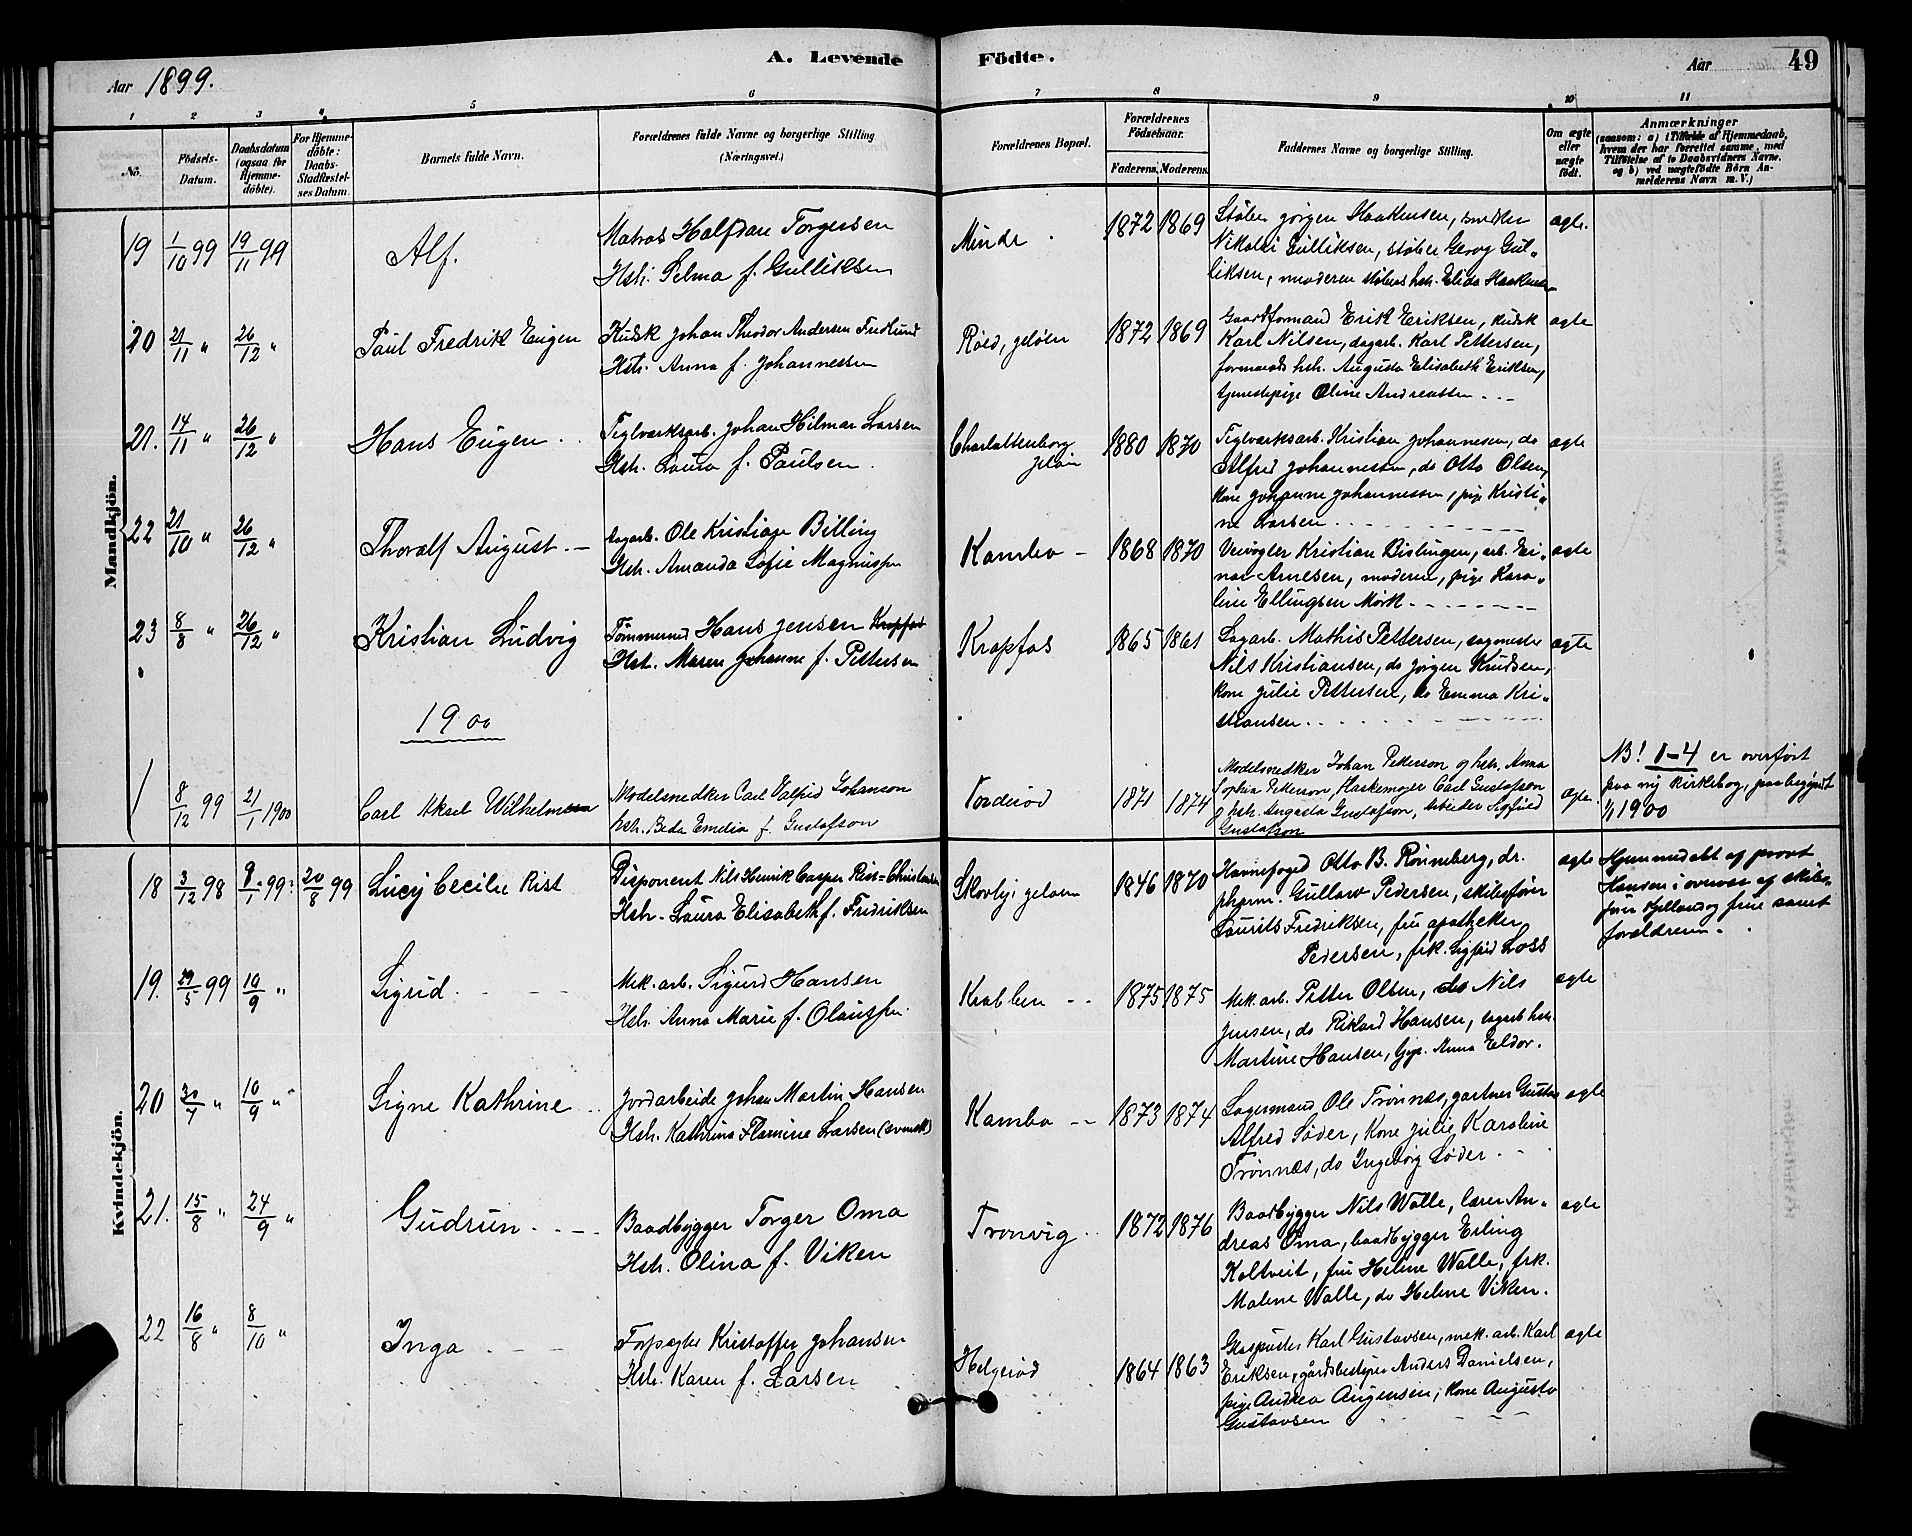 Aar 1899.
A. Levende
Födte.
Aar
49
1 2 3 4 5 6 7 8 9 10 11
No.
Födsels-
Datum.
Daabsdatum
(ogsaa for
Hjemme-
döbte).
For Hjemme-
döbte:
Daabs-
Stadfæstel-
ses Datum.
Barnets fulde Navn.
Forældrenes fulde Navne og borgerlige Stilling
(Næringsvei.)
Forældrenes Bopæl.
Forældrenes
Födselsaar.
Faderens. Moderens.
Faddernes Navne og borgerlige Stilling.
Om ægte
eller
uægte
födt.
Anmærkninger
(saasom: a) i Tilfælde af Hjemmedaab,
hvem der har forrettet samme, med
Tilföielse af to Daabsvidners Navne,
og b) ved uægtefödte Börn An-
melderens Navn m. V.)
Mandkjön.
19 1/10 99 19/11 99 Alf.
Matros Halfdan Torgersen
Hstr. Selma f. Gulliksen
Minde 1872 1869
Støber Jørgen Haakensen, snedker
Nikolai Gulliksen, støber Georg Gul-
liksen, moderen, støbers hstr. Elida Haakensen
ægte.
20 21/11 " 26/12 " Paul Fredrik Eugen
Kudsk Johan Theodor Andersen Fredlund
Hstr. Anna f. Johannessen
Røed, Jeløen 1872 1869
Gaardsformand Erik Eriksen, kudsk
Karl Nilsen, dagarb. Karl Pettersen,
formands hstr. Augusta Elisabeth Eriksen,
tjenestepige Oline Andreassen
ægte
21. 14/11 " 26/12 " Hans Eugen
Teglværksarb. Johan Hilmar Larsen
Hstr. Laura f. Paulsen.
Charlottenborg
Jeløin
1880 1870
Teglværksarb. Kristian Johannesen, do
Alfred Johannessen, do Otto Olsen,
kone Johanne Johannessen, pige Kristi-
ne Larsen
ægte
22 21/10 " 26/12 " Thoralf August.
Sagarb. Ole Kristian Billing
Hstr. Amanda Sofie Magnussen
Kambo 1868 1870
Kristian Bislingen, arb. Ei-
nar Arnesen, moderen, pige Karo-
line Ellingsen Mørk
ægte
23 8/8 " 26/12 " Kristian Ludvig
Tømmermd Hans Jensen Krapfos
Hstr. Maren Johanne f. Pettersen
Krapfos 1865 1861
Sagarb. Mathis Pettersen, sagmester
Nils Kristiansen, do Jørgen Knudsen,
kone Julie Pettersen, do Emma Kri-
stiansen
ægte
1900
1 8/12 99 21/1 1900 Carl Aksel Wilhelm
Modelsnedker Carl Valfrid Johanson
hstr. Beda Emelia f. Gustafson
Torderød 1871 1874
Modelsnedker Johan Petterson og hstr. Anna
Sophia Petterson, Carl Gustafsson
og hstr. Augusta Gustafson, Arbeider Sigfrid
Gustafsson
ægte.
NB! 1-4 er overført
paa ny Kirkebog, paabegyndt
1/1 1900
Kvindekjön.
18 3/12 98 9/1 99: 20/8 99 Lucy Cecilie Rist
Disponent Nils Henrik Casper Rist-Christensen
Hstr. Laura Elisabeth f. Fredriksen
Skovly, Jeløen 1846 1870
Havnefoged Otto B. Rønneberg, dr.
pharm. Gullow Pedersen, skibsfører
Laurits Fredriksen, fru apotheker
Pedersen, frk. Sigfrid Loss
ægte
Hjemmedøbt af provst
Hansen i overvær af skibs-
fører Kjelland og frue samt
forældrene.
19. 29/5 99 10/9 " Sigrid.
Mek. arb. Sigurd Hansen
Hstr. Anna Marie f. Olaussen
Krabben 1875 1875
Mek. arb. Petter Olsen, do Nils
Jensen, do Rikard Hansen, sagarb. hstr.
Martine Hansen, tjp. Anna Eldor.
ægte
20 30/7 " 10/9 " Signe Kathrine
Jordarbeider Johan Martin Hansen
Hstr. Kathrina Flamine Larsen (svensk)
Kambo 1873 1874
Lagermand Ole Trønnes, gartner Gustav
Alfred Søder, kone Julie Karoline
Trønnes, do Ingeborg Søder.
ægte
21. 15/8 " 24/9 " Gudrun
Baadbygger Torger Oma
Hstr. Olina f. Viken
Tronvig 1872 1876
Baadbygger Nils Walle, lærer An-
dreas Oma, baadbygger Erling
Koltveit, fru Helene Walle, frk.
Malene Walle, do Helene Viken.
ægte
22 16/8 " 8/10 " Inga
Forpagter Kristoffer Johansen
Hstr. Karen f. Larsen
Helgerød 1864 1863
Glaspuster Karl Gustavsen, mek. arb. Karl
Eriksen, gårdsbestyrer Anders Danielsen,
pige Andrea Augensen, kone Augusta
Gustavsen
ægte